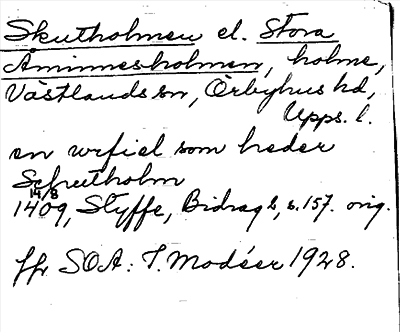 Skutholmen el. Stora
Åminnesholmen, holme,
Västlands sn, Örbyhus hd,
Upps. l.
en wrfiel som heder
Schutholm
14/8
1409, Styffe, Bidrag 2, s. 157. orig.
SOA: I. Modéer 1928.